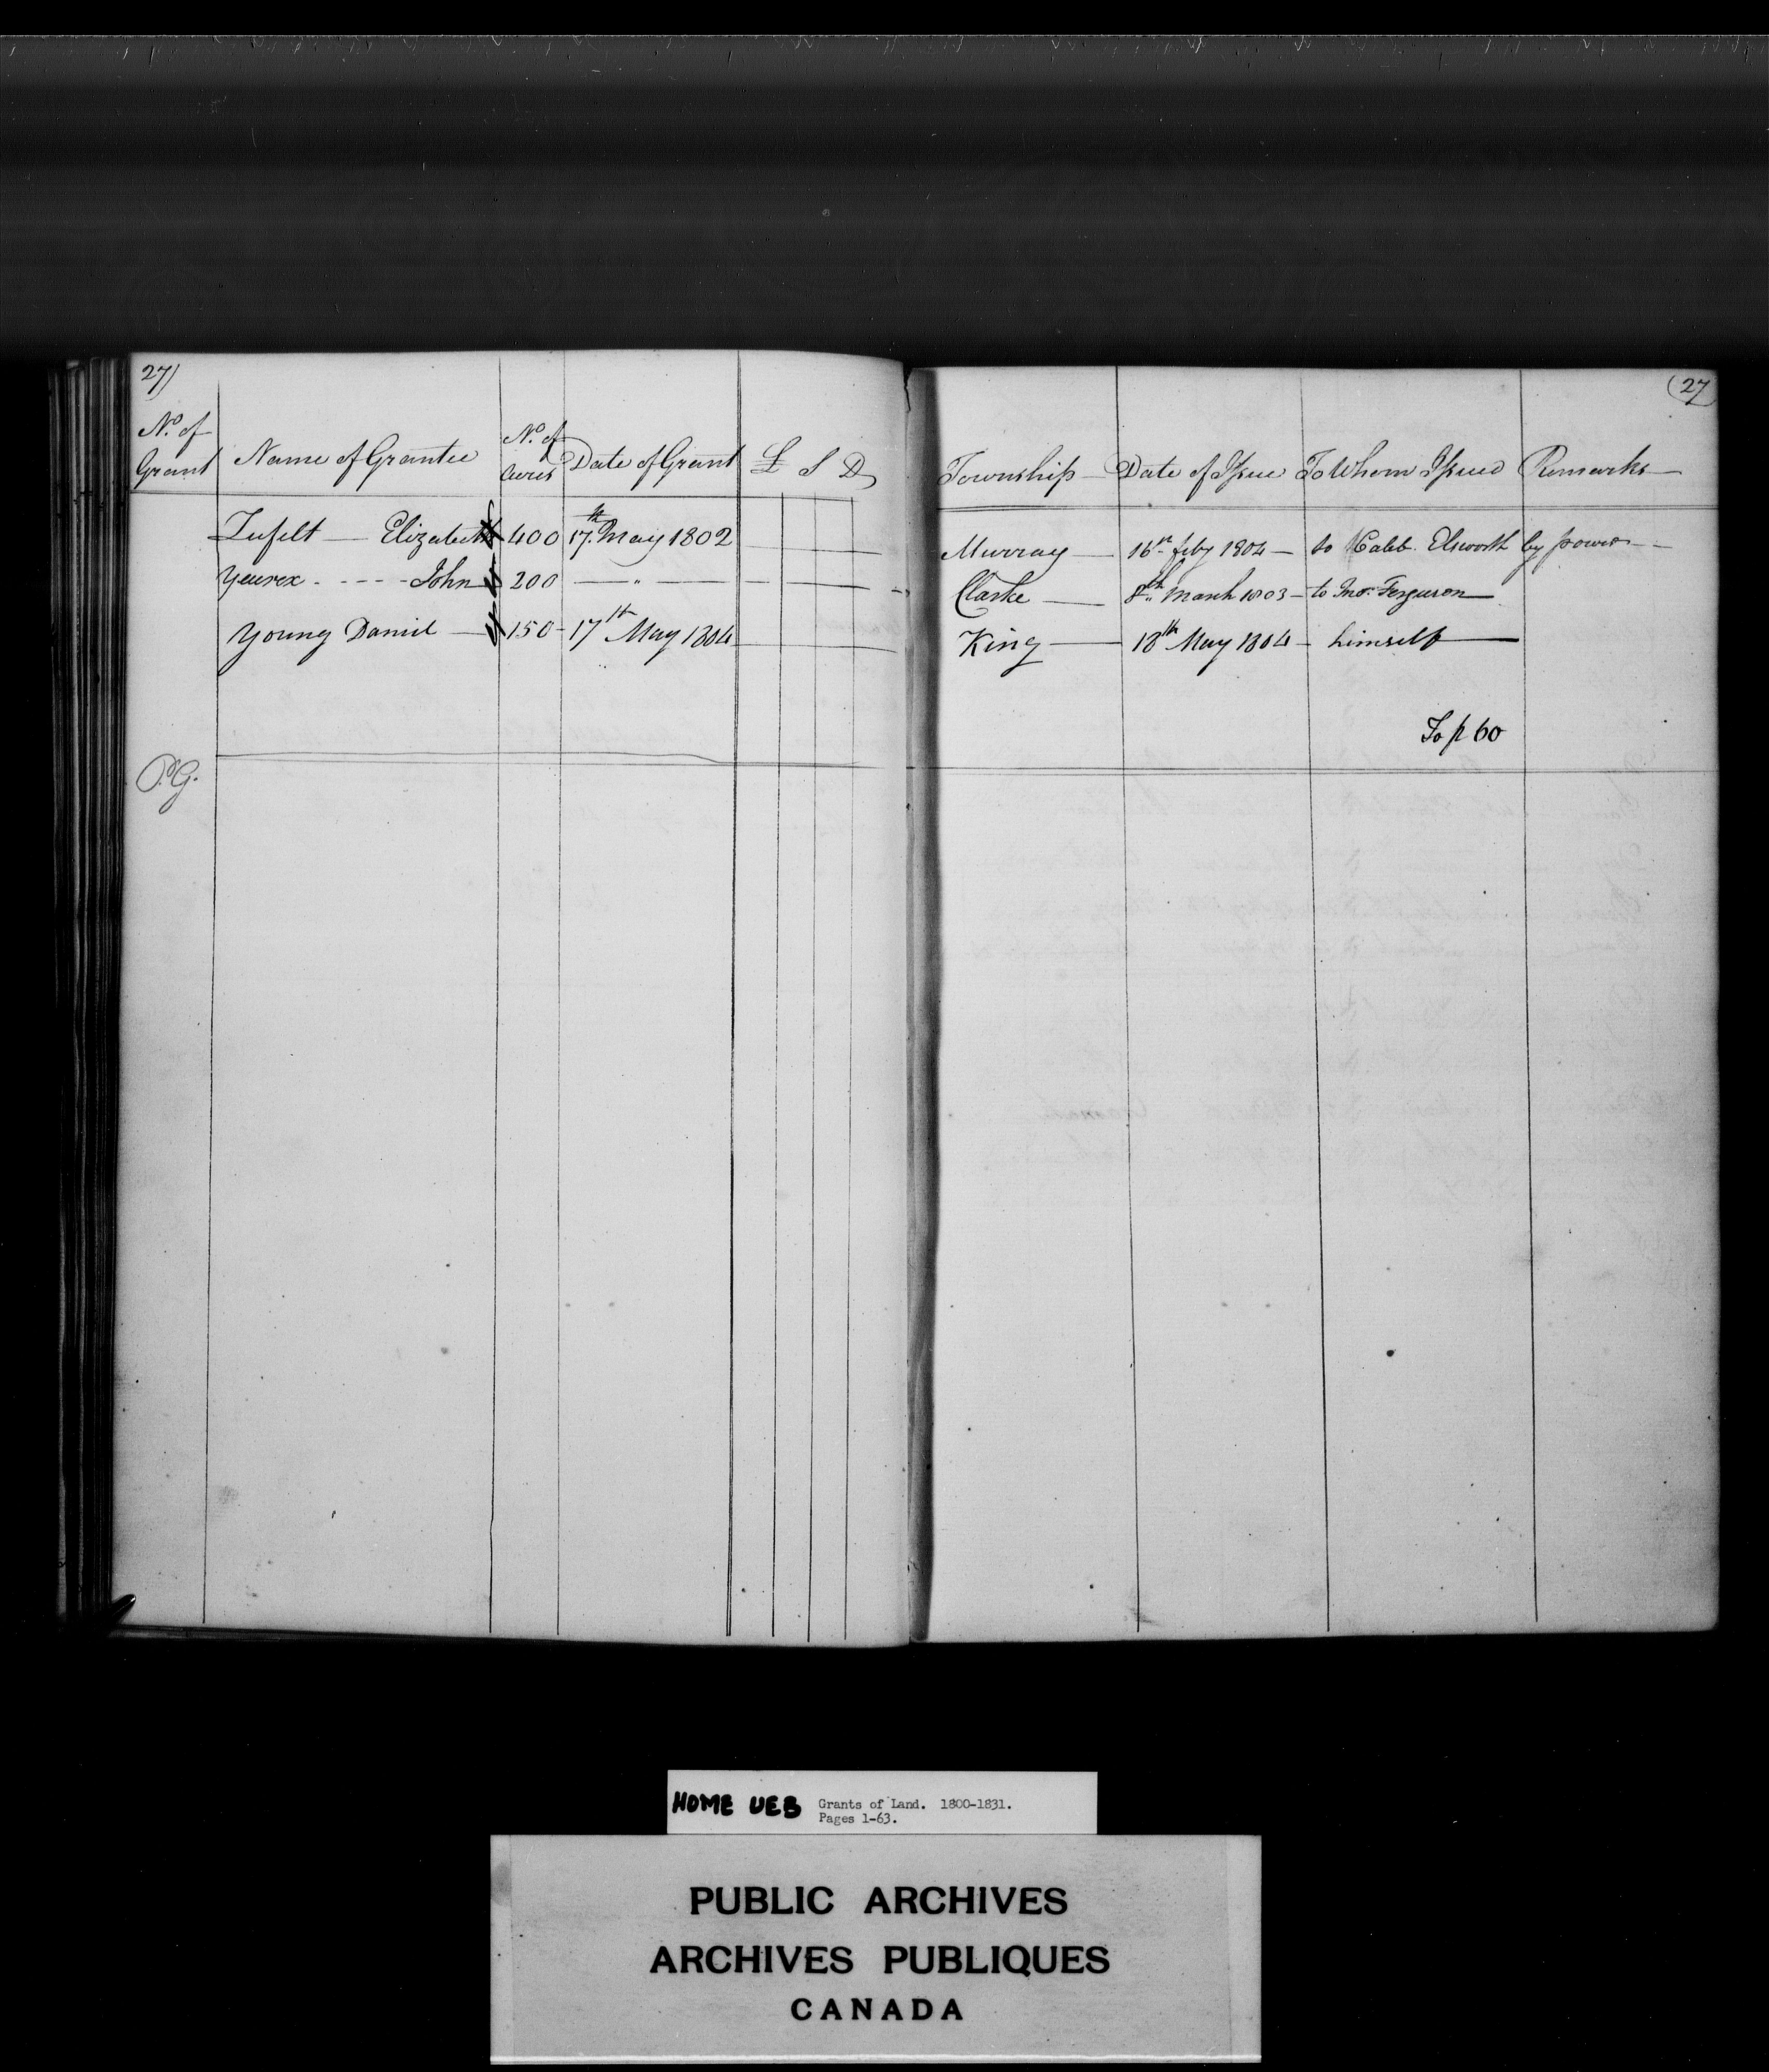 27)
(27
No. of Grant Name of Grantee No. of Acres Date of Grant £ S D Township Date of Issue To Whom Issued Remarks
Zufelt Elizabeth 400 17th May 1802 Murray 16th feby 1804 to Caleb Elsworth by power
Yeurex John 200 " Clarke 8th March 1803 to Jno. Ferguson
Young Daniel 150 17th May 1804 King 18th May 1804 himself
To p 60
P.G.
HOME UEB Grants of Land. 1800-1831.
Pages 1-63.
PUBLIC ARCHIVES
ARCHIVES PUBLIQUES
CANADA